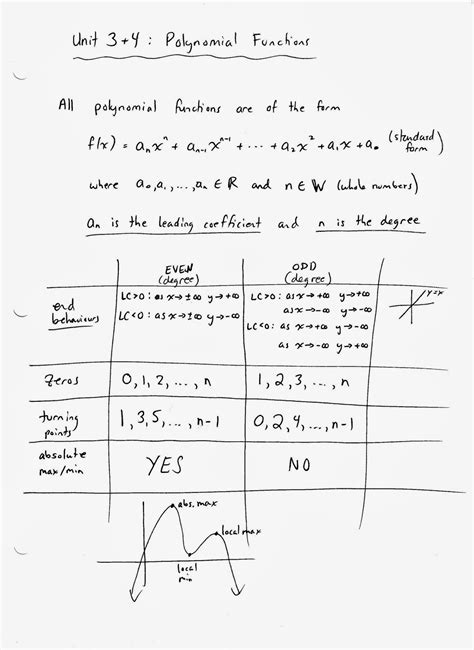 Unit 3+4 : Polynomial Functions
All polynomial functions are of the form
f(x) = aₙxⁿ + aₙ₋₁xⁿ⁻¹ + ... + a₂x² + a₁x + a₀ (standard form)
where a₀, a₁, ..., aₙ ∈ ℝ and n ∈ 𝕎 (whole numbers)
aₙ is the leading coefficient and n is the degree
EVEN (degree) ODD (degree)
end behaviours
LC>0 : as x→±∞ y→+∞
LC<0 : as x→±∞ y→-∞
LC>0 : as x→+∞ y→+∞
as x→-∞ y→-∞
LC<0 : as x→+∞ y→-∞
as x→-∞ y→+∞
y=x
zeros 0, 1, 2, ..., n 1, 2, 3, ..., n
turning points 1, 3, 5, ..., n-1 0, 2, 4, ..., n-1
absolute max/min YES NO
abs. max
local max
local min